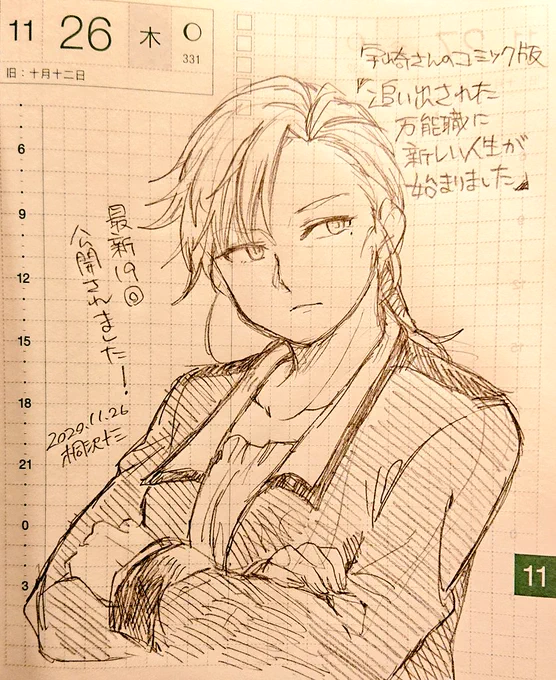 11 26 木
331
旧:十月十二日
宇崎さんのコミック版
『追い出された
万能職に
新しい人生が
始まりました』
6
9
12
15
18
21
0
3
最新19回
公開されました!
2020.11.26
桐沢十三
11